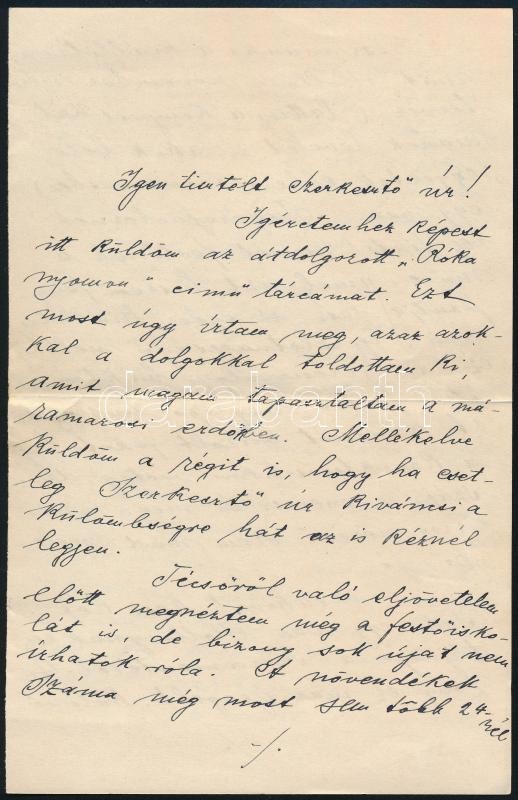 Igen tisztelt Szerkesztő úr!
Igéretemhez képest
itt küldöm az átdolgozott „Róka
nyomon" cimű tárcámat. Ezt
most úgy írtam meg, azaz azok-
kal a dolgokkal toldottam ki,
amit magam tapasztaltam a má-
ramarosi erdőkben. Mellékelve
küldöm a régit is, hogy ha eset-
leg Szerkesztő úr kiváncsi a
külömbségre hát az is kéznél
legjen.
Técsőről való eljövetelem
előtt megnéztem még a festőisko-
lát is, de bizony sok újat nem
írhatok róla. A növendékek
száma még most sem több 24-
nél
-/.
darabanth